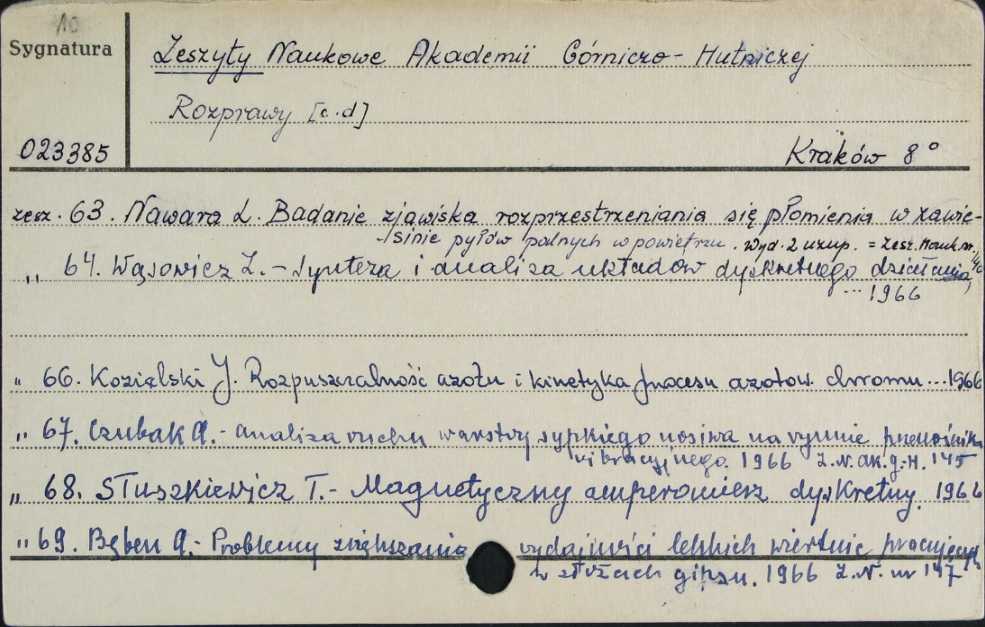 10
Sygnatura
Zeszyty Naukowe Akademii Górniczo-Hutniczej
Rozprawy [c.d]
023385
Kraków 8°
zesz. 63. Nawara L. Badanie zjawiska rozprzestrzeniania się płomienia w zawie-
sinie pyłów palnych w powietrzu. Wyd. 2 uzup. = Zesz. Nauk. nr.
„ 64. Wąsowicz Z. - Synteza i analiza układów dyskretnego działania,
... 1966
„ 66. Kozielski J. Rozpuszczalność azotu i kinetyka procesu azotow. chromu ... 1966
„ 67. Czubak A. - Analiza ruchu warstwy sypkiego nosiwa na rynnie przenośnika
wibracyjnego. 1966 Z.N. AK. G.-H. 145
„ 68. Słuszkiewicz T. - Magnetyczny amperomierz dyskretny. 1966
„ 69. Bęben A. - Problemy zwiększania wydajności lekkich wiertnic pracujących
w złożach gipsu. 1966 Z.N. nr 147